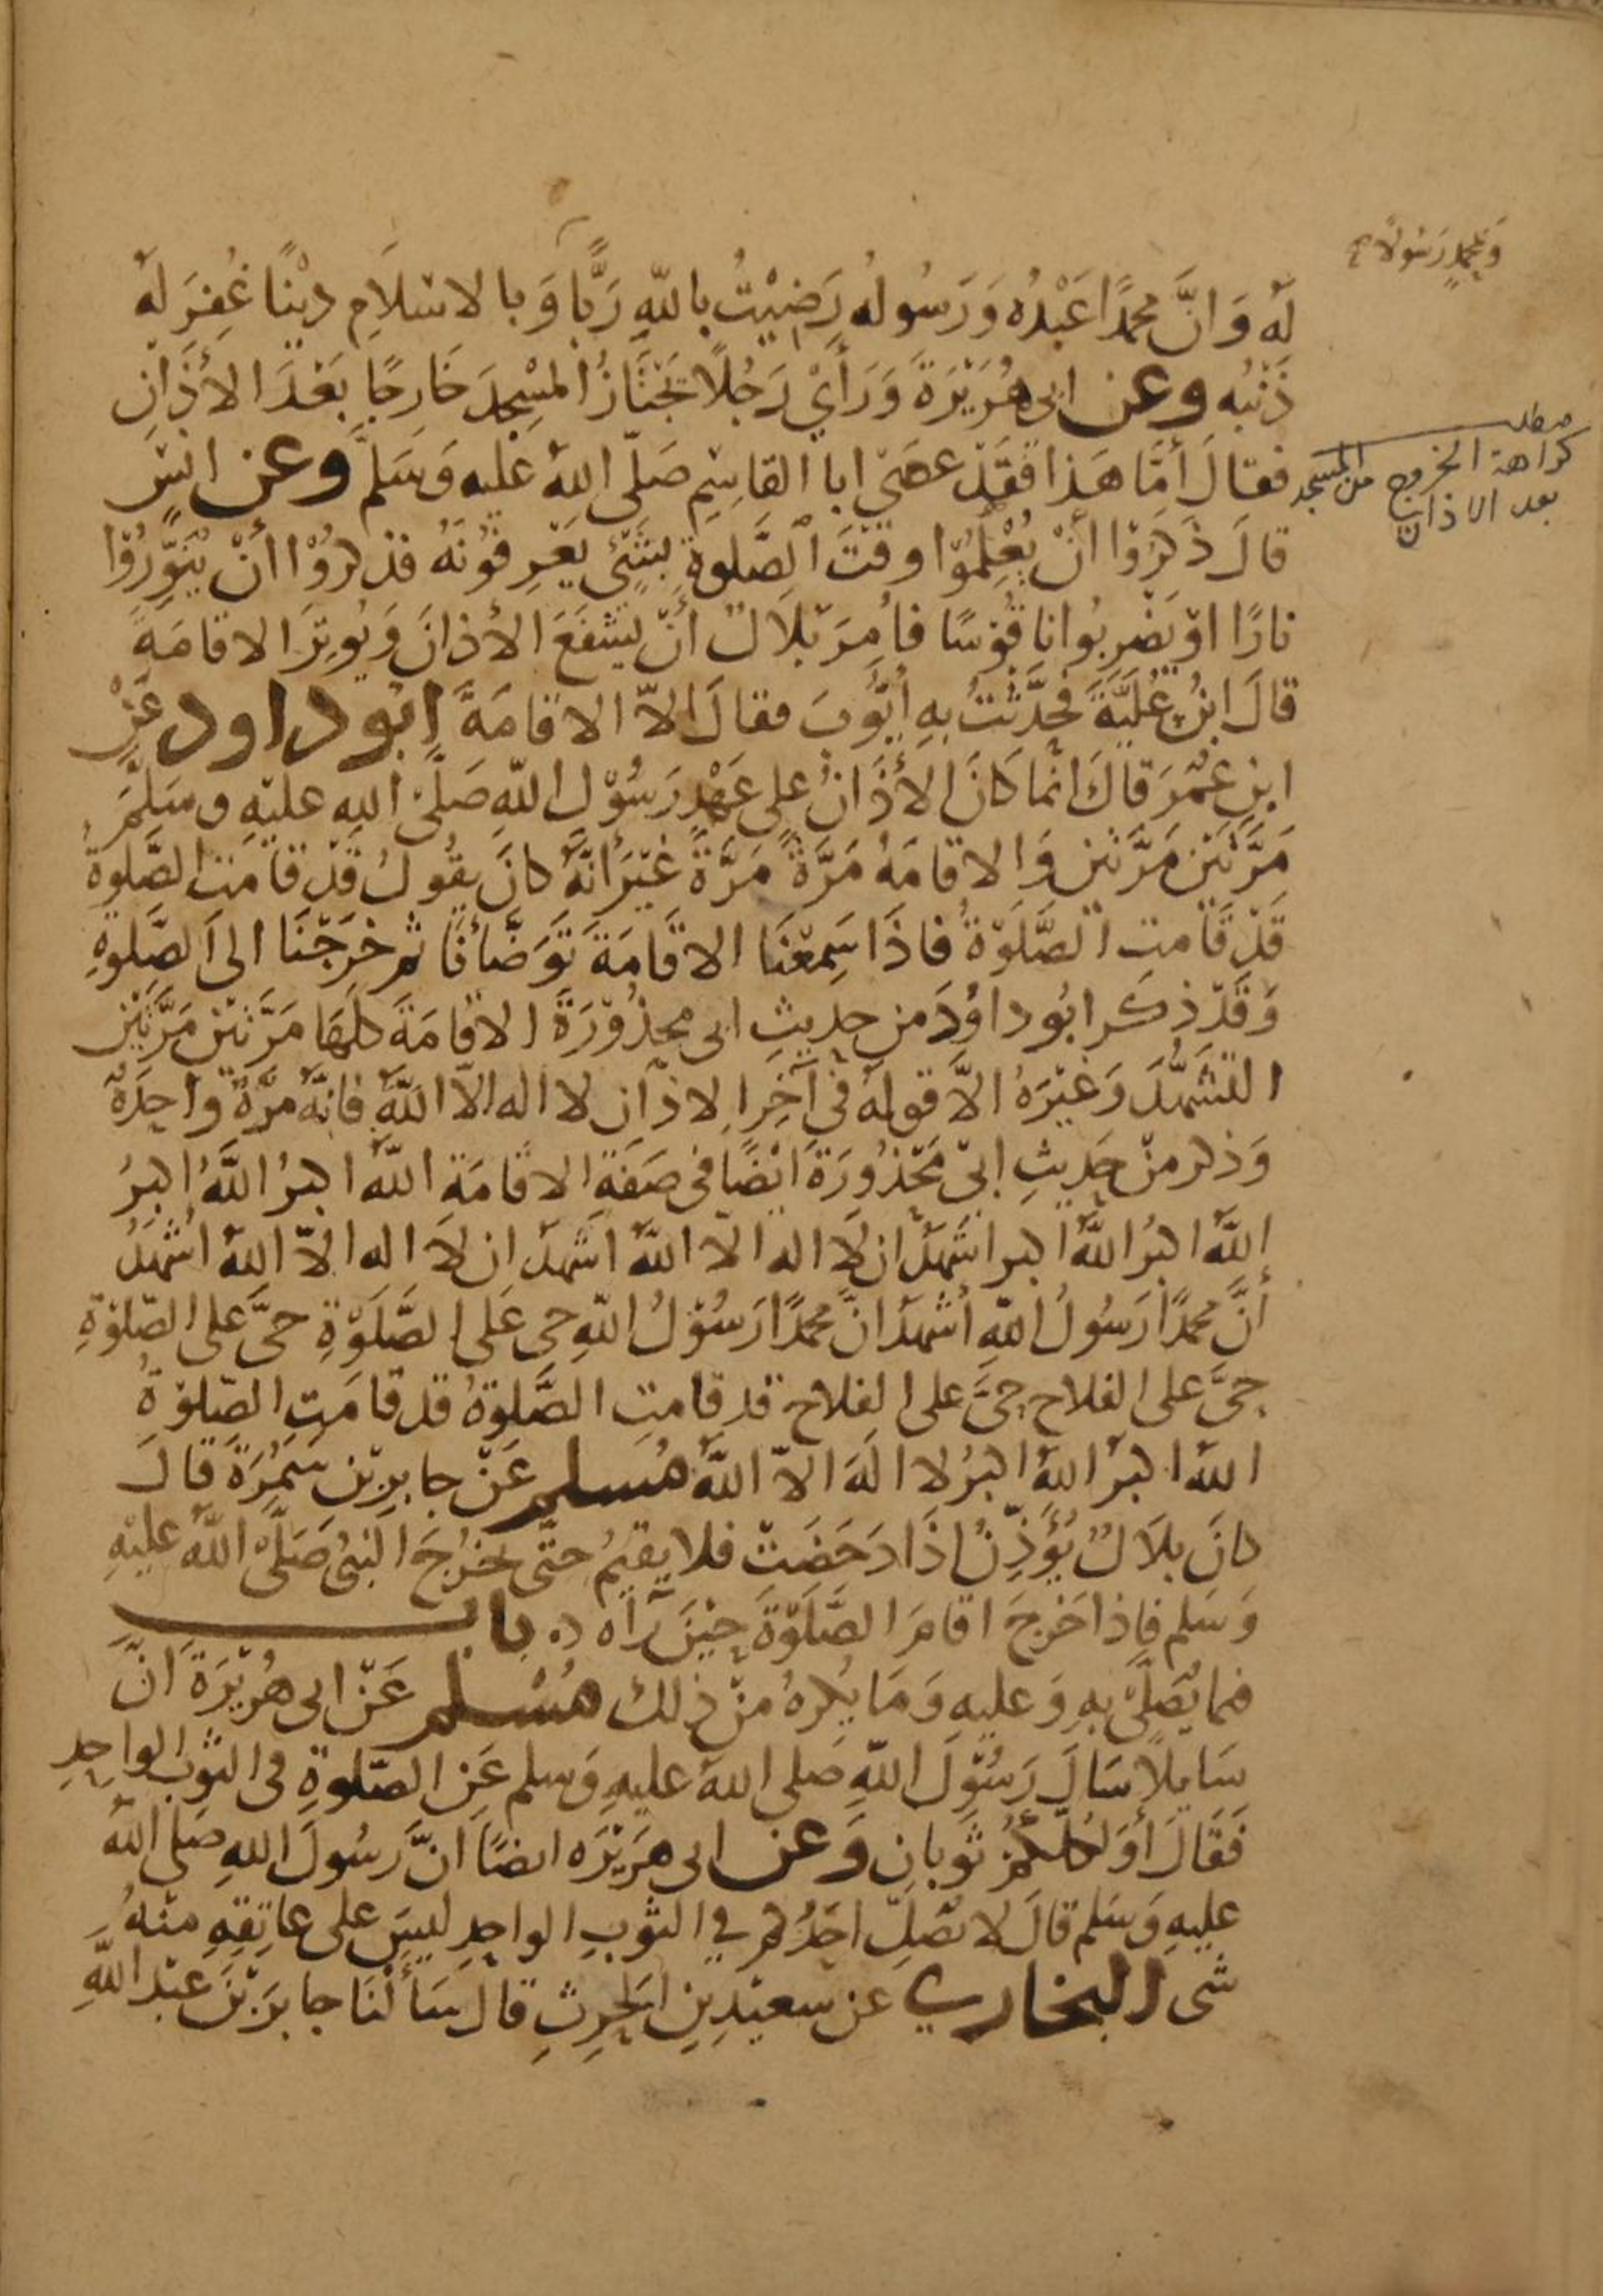 وَبمحمدٍ رَسُولاً صح
لَهُ وَانَّ محمدًا عَبْدُه وَرَسُولُه رَضِيْتُ بِاللّهِ رَبًّا وَبالاسْلَامِ دِيْنًا غُفِرَ لَهُ
ذَنْبُه وعن ابى هُرَيْرَةَ وَرَأَيْ رَجُلًا يَجْتَازُ المسْجِدَ خَارِجًا بَعْدَ الأَذَانِ
مطلب
كراهة الخروج من المسجد
بعد الاذان
فقالَ أمَّا هَذا فَقَدْ عصَىٰ ابا القاسِمِ صَلّى اللهُ عَليه وَسَلّم وعن انسٍ
قالَ ذَكَرُوْا أنْ يُعْلِمُوْا وقْتَ الصَّلوةِ بشَئٍ يَعْرِفُونَهُ فذكرُوْا أنْ يُنَوِّرُوْا
نارًا اوْ يَضْرِبُوا ناقُوسًا فأُمِرَ بلالٌ انْ يشفَعَ الأذانَ وَيُوتِرَ الاقامَةَ
قالَ ابنُ عُلَيَّةَ فحَدَّثتُ بهِ أيُّوبَ فقالَ الاّ الاقامَةَ ابُو داود عَنْ
ابنِ عُمَرَ قالَ انَّما كانَ الأَذَانُ على عَهْدِ رَسُوْلِ اللّهِ صَلَّى اللهِ عليْهِ وسَلّمَ
مَرَّتَيْنِ مَرَّتيْنِ وَالاقامَةُ مَرَّةً مَرَّةً غيْرَ أنَّهُ كانَ يقُولُ قَدْ قامَتِ الصَّلوةُ
قَدْ قَامتِ الصَّلَوةُ فاذَا سَمِعْنَا الاقَامَةَ تَوَضَّأنَا ثم خرَجْنَا الى الصَّلوةِ
وَقَدْ ذكَر ابُو داوُدَ من حديثِ ابى محذُوْرَةَ الاقامَةَ كلَّهَا مَرَّتَيْن مَرَّتَيْنِ
التشَهُّدَ وَغيْرَهُ الاَّ قولَهُ فى آخِرِ الاذآن لا اله الاّ اللّهُ فانهُ مَرَّةً واحِدَةً
وَذكر منْ حَدِيثِ ابىْ مَحْذُورَةَ ايْضًا فى صفَةِ الاقامَةِ اللّهُ اكبرُ اللّهُ اكبرُ
اللّهُ اكبرُ اللّهُ اكبر اشهَدُ ان لا اله الا اللّهُ اشهَد ان لا اله الاّ اللهُ اشهَدُ
أنَّ محمدًا رَسُولُ اللّهِ اشهَدُ انَّ محمدًا رَسُوْلُ اللّهِ حى عَلى الصَّلَوةِ حىَّ على الصّلوةِ
حىَّ على الفلاح حىَّ على الفلاح قد قامتِ الصَّلوةُ قد قامَتِ الصّلوةُ
اللهُ اكبرُ اللهُ اكبرُ لا الهَ الاّ اللّهُ مُسلم عَنْ جابرِ بْن سَمُرَةَ قالَ
كانَ بلَالٌ يُؤَذِّنُ اذَا دَحَضَتْ فلا يقيمُ حتى يخرُجَ النبىُّ صَلَّى اللهُ عليْهِ
وَسَلم فاذا خرجَ اقامَ الصَّلَوةَ حِيْنَ يَرَاه ۵ باب
فما يُصَلَّى بهِ وَعليهِ وَمَا يُكرهُ منْ ذلك مُسْلم عَنْ ابى هُرَيْرَةَ انَّ
سَايلاً سَالَ رَسُوْلَ اللّهِ صَلى اللهُ عليهِ وَسلم عَنِ الصّلوةِ فى الثوْبِ الواحِدِ
فَقَالَ أوَلكُلِّكُمْ ثَوبانِ وَعن ابى هرَيْرَه ايضًا انَّ رسُولَ اللهِ صَلى اللهُ
عليهِ وَسَلم قالَ لا يُصَلِّ احَدُكم في الثوْبِ الواحِدِ ليسَ على عاتِقهِ منْهُ
شى البخارى عن سعيْدِ بنِ الحٰرِثِ قالَ سَأَلْنَا جابرَ بْنَ عبْدِ اللّهِ